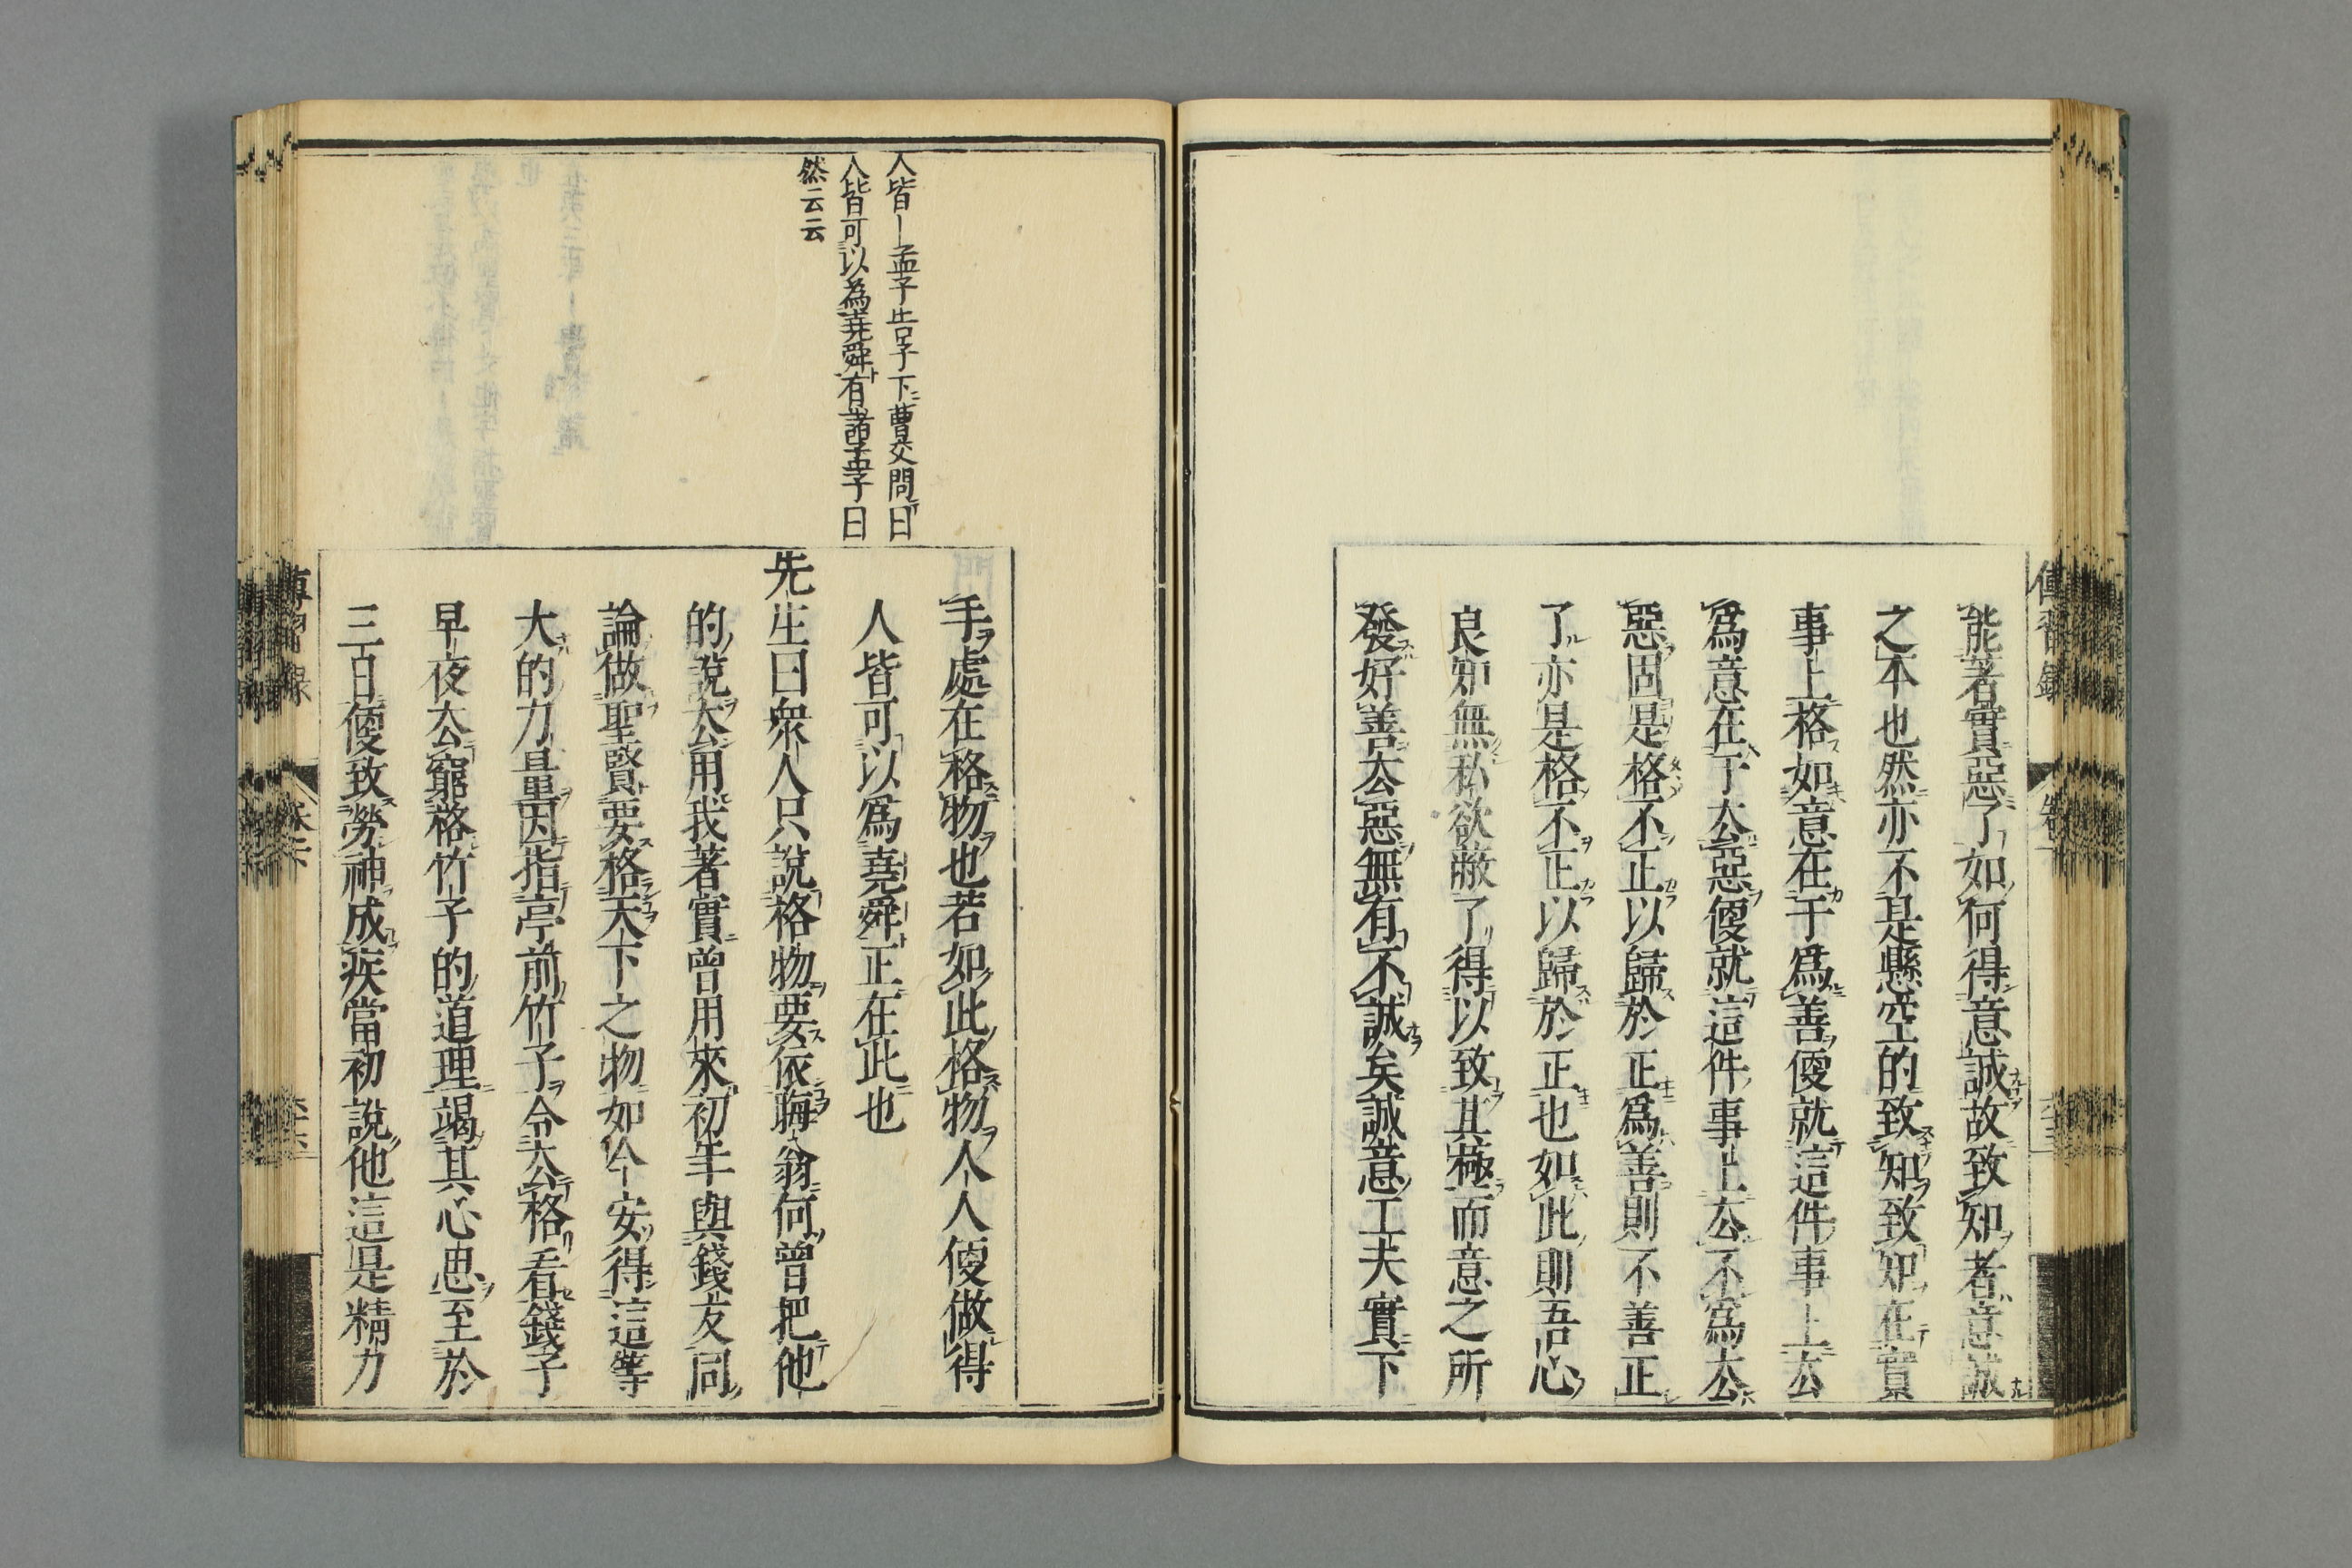 能著實惡了如何得意誠故致知者意誠
之本也然亦不是懸空的致知致知在實
事上格如意在于爲善便就這件事上去
爲意在于去惡便就這件事上去不爲去
惡固是格不正以歸於正爲善則不善正
了亦是格不正以歸於正也如此則吾心
良知無私欲蔽了得以致其極而意之所
發好善去惡無有不誠矣誠意工夫實下
人皆〡孟子告子下曹交問曰
人皆可以為堯舜有諸孟子曰
然云云
手處在格物也若如此格物人人便做得
人皆可以爲堯舜正在此也
先生曰衆人只說格物要依晦翁何曾把他
的說去用我著實曾用來初年與錢友同
論做聖賢要格天下之物如今安得這等
大的力量因指亭前竹子令去格看錢子
早夜去窮格竹子的道理竭其心思至於
三日便致勞神成疾當初說他這是精力